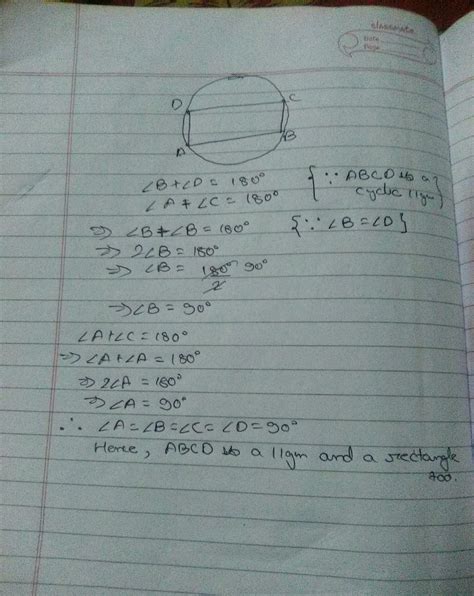 classmate
Date
Page
D C
A B
∠B + ∠D = 180° {∵ ABCD is a
∠A + ∠C = 180° cyclic llgm}
⇒ ∠B + ∠B = 180° {∵ ∠B = ∠D}
⇒ 2∠B = 180°
⇒ ∠B = 180° 90°
2
⇒ ∠B = 90°
∠A + ∠C = 180°
⇒ ∠A + ∠A = 180°
⇒ 2∠A = 180°
⇒ ∠A = 90°
∴ ∠A = ∠B = ∠C = ∠D = 90°
Hence, ABCD is a llgm and a rectangle
too.